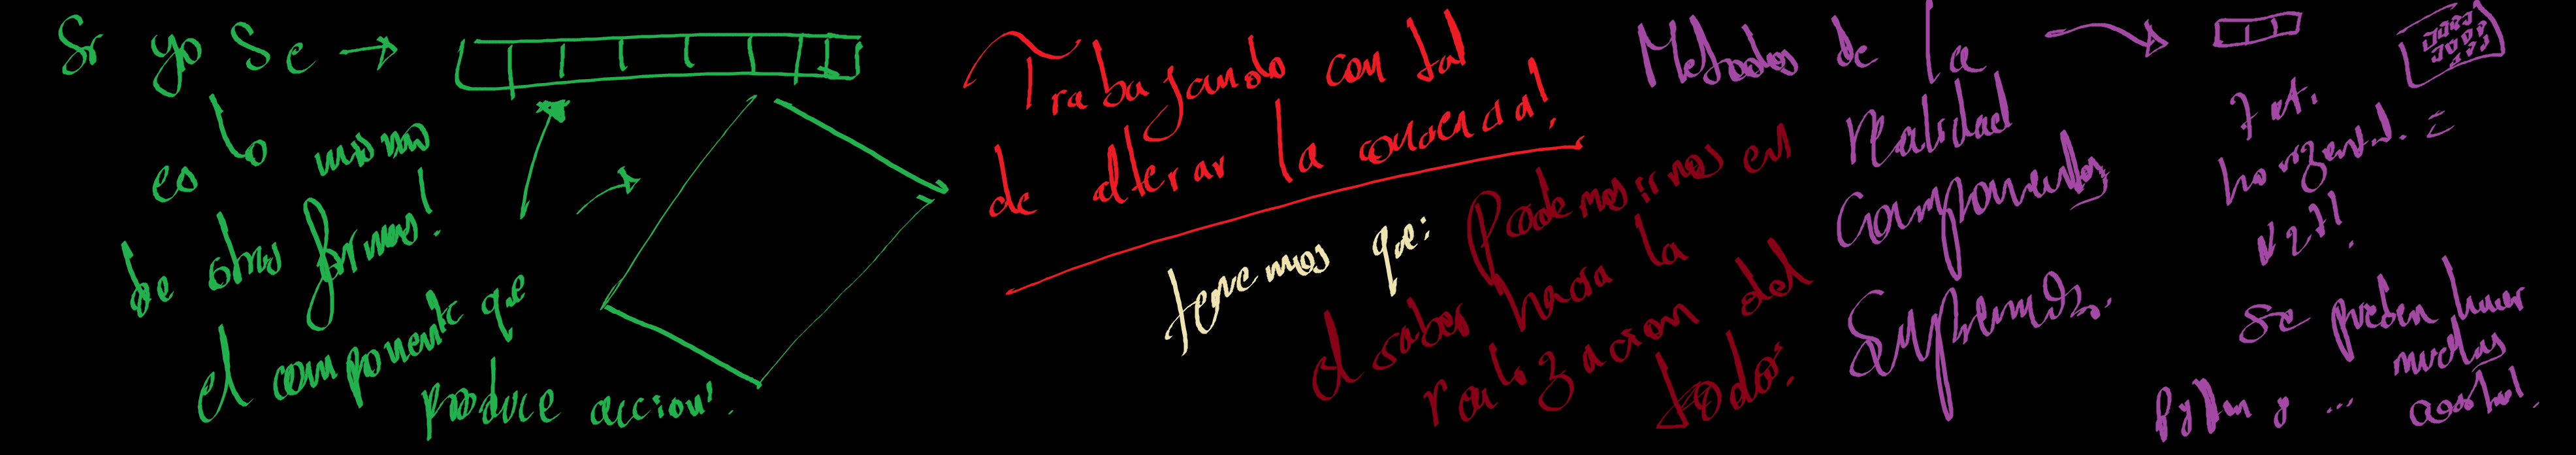 Si yo Se →
es lo mismo
de otras formas!
el componente que
produce accion!.
Trabajando con tal
de alterar la conciencia!
tenemos que:
Podemos irnos en
el saber hacia la
realizacion del
todo:
Metodos de la
Realidad
Componentes
Supremos.
horizont. =
Se pueden hacer
muchas
Python y ...